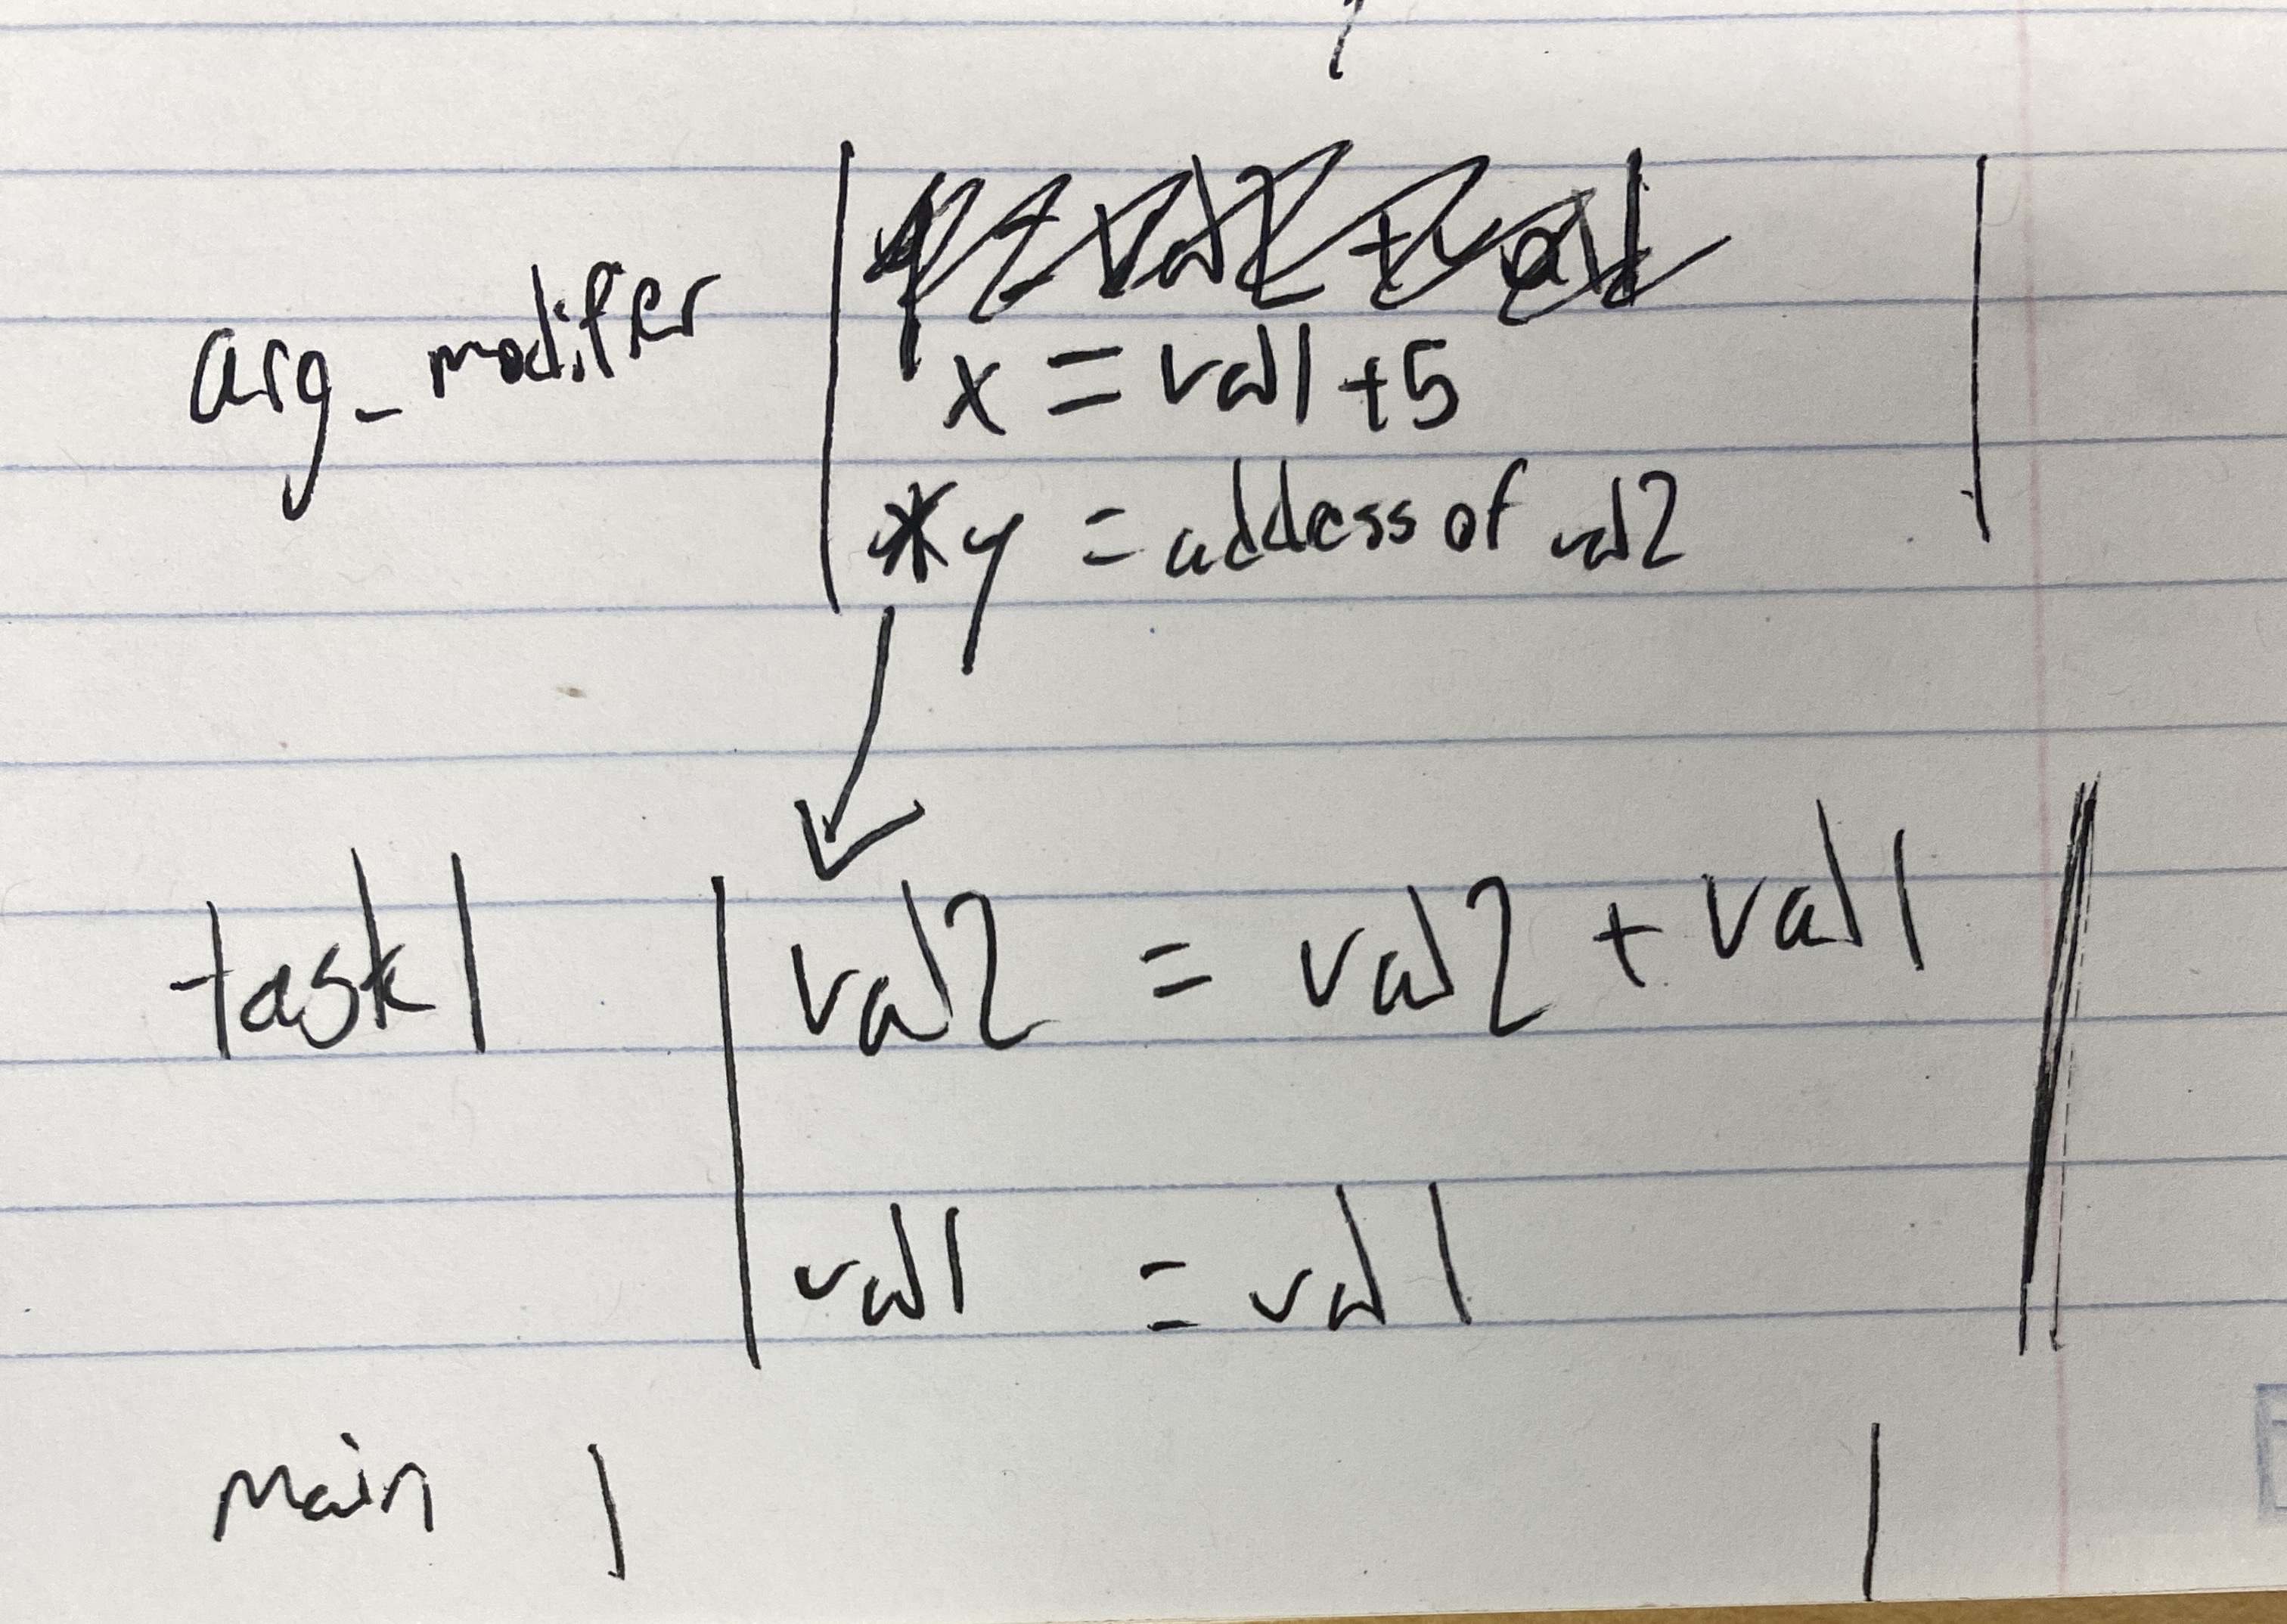 arg_modifier
x = val1 + 5
*y = addess of val2
task1 val2 = val2 + val1
val1 = val1
main